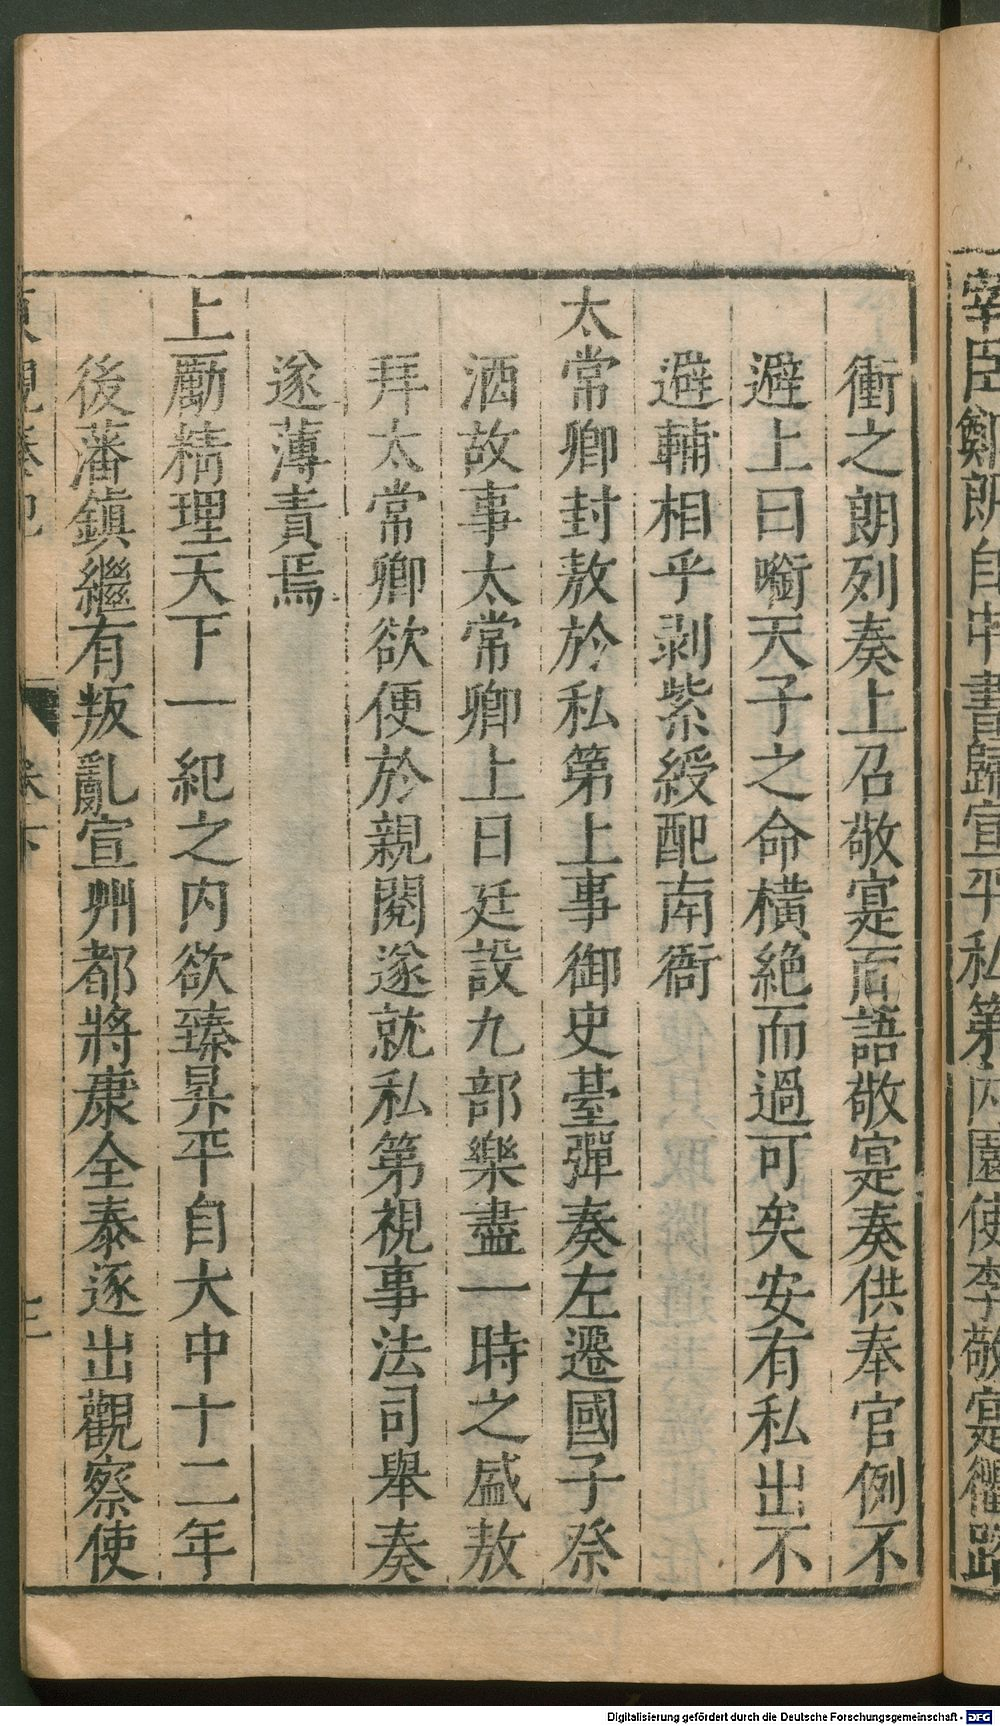 宰臣鄭朗自中書歸宣平私第內園使李敬寔衢路
衝之朗列奏上召敬寔面語敬寔奏供奉官例不
避上曰㗸天子之命橫絕而過可矣安有私出不
避輔相乎剥紫綬配南衙
太常卿封敖於私第上事御史臺彈奏左遷國子祭
酒故事太常卿上日廷設九部樂盡一時之盛敖
拜太常卿欲便於親閱遂就私第視事法司舉奏
遂薄責焉
上勵精理天下一紀之內欲臻昇平自大中十二年
後藩鎮繼有叛亂宣州都將康全泰逐出觀察使
卷下
Digitalisierung gefördert durch die Deutsche Forschungsgemeinschaft - DFG